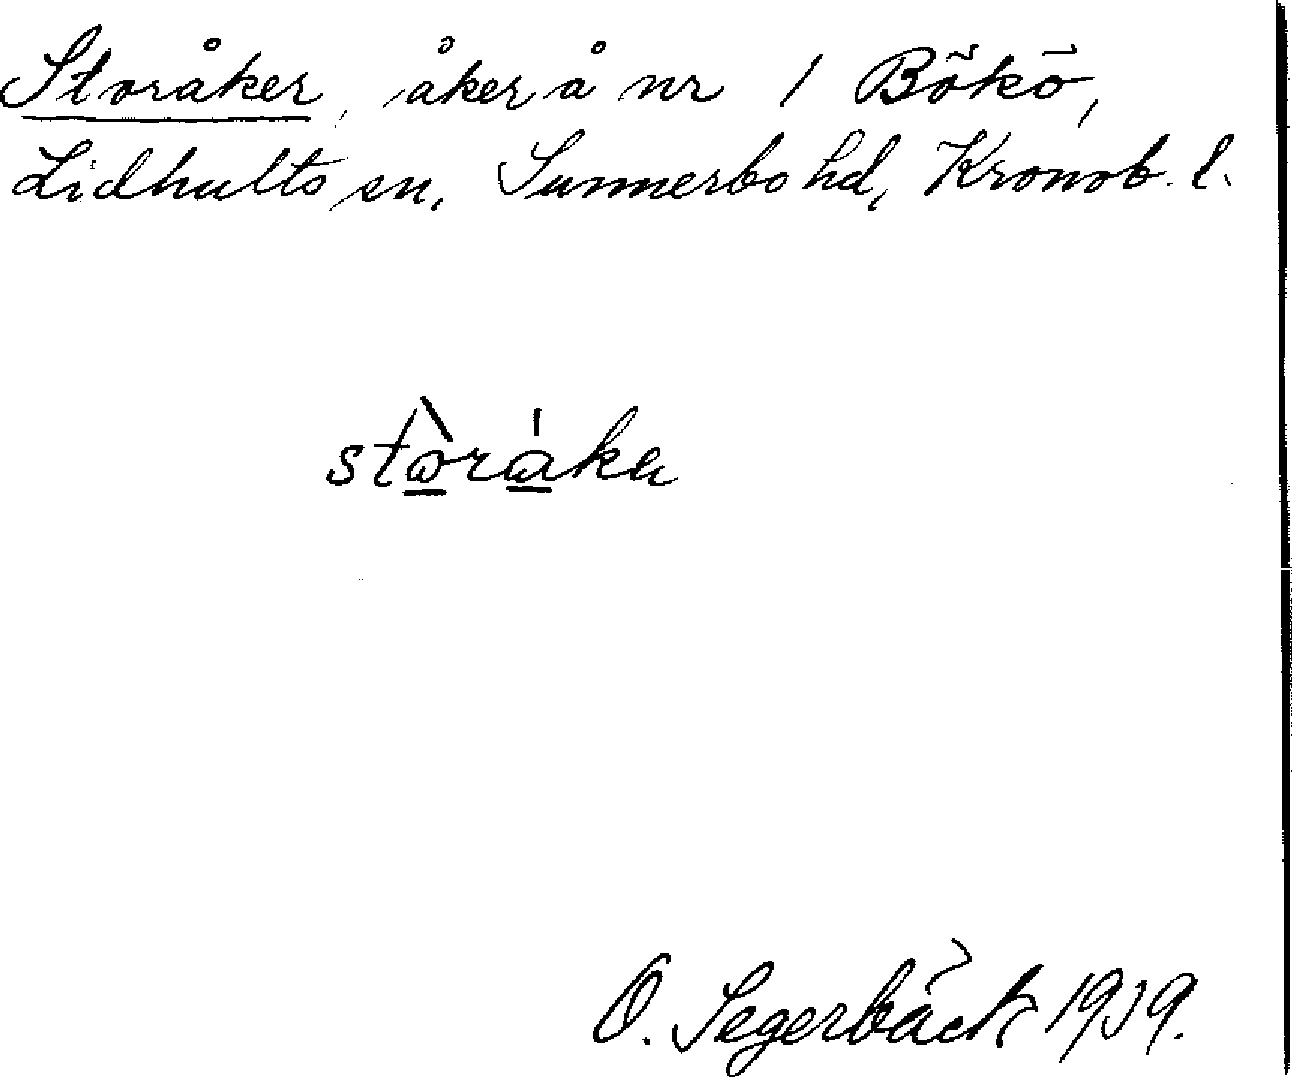 Storåker, åker å nr 1 Bökö,
Lidhults sn, Sunnerbo hd, Kronob. l.
O. Segerbäck 1939.